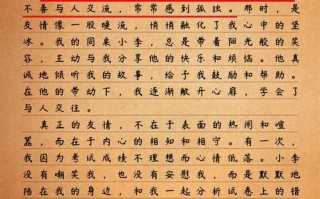 不善与人交流，常常感到孤独。那时，是
友情像一股暖流，悄悄融化了我心中的坚
冰。我的同桌小李，总是带着阳光般的笑
容，主动与我分享他的快乐和烦恼。他真
诚地倾听我的故事，给予我鼓励和帮助。
在他的带动下，我逐渐敞开心扉，学会了
与人交往。
真正的友情，不在于表面的热闹和喧
嚣，而在于内心的相知和相守。有一次，
我因为考试成绩不理想而心情低落。小李
没有嘲笑我，也没有安慰我，而是默默地
陪在我的身边，和我一起分析试卷上的错